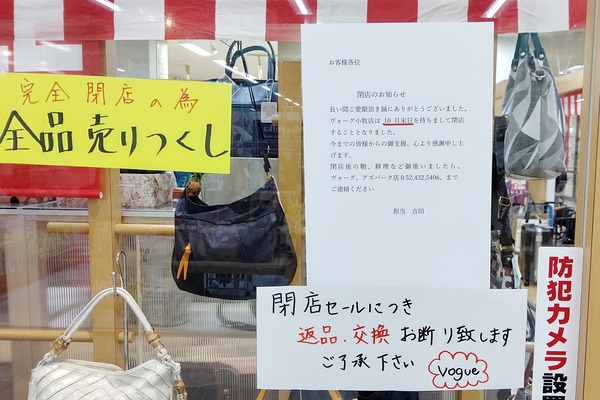 完全閉店の為
全品売りつくし
お客様各位
閉店のお知らせ
長い間ご愛眼頂き誠にありがとうございました。
ヴォーグ小牧店は 10 月末日を持ちまして閉店
することとなりました。
今までの皆様からの御支援、心より感謝申し上
げます。
閉店後の鞄、修理など御座いましたら、
ヴォーグ、アズパーク店０52,432,5406、まで
ご連絡ください
担当　吉田
閉店セールにつき
返品、交換 お断り致します
ご了承下さい
Vogue
防犯カメラ設置